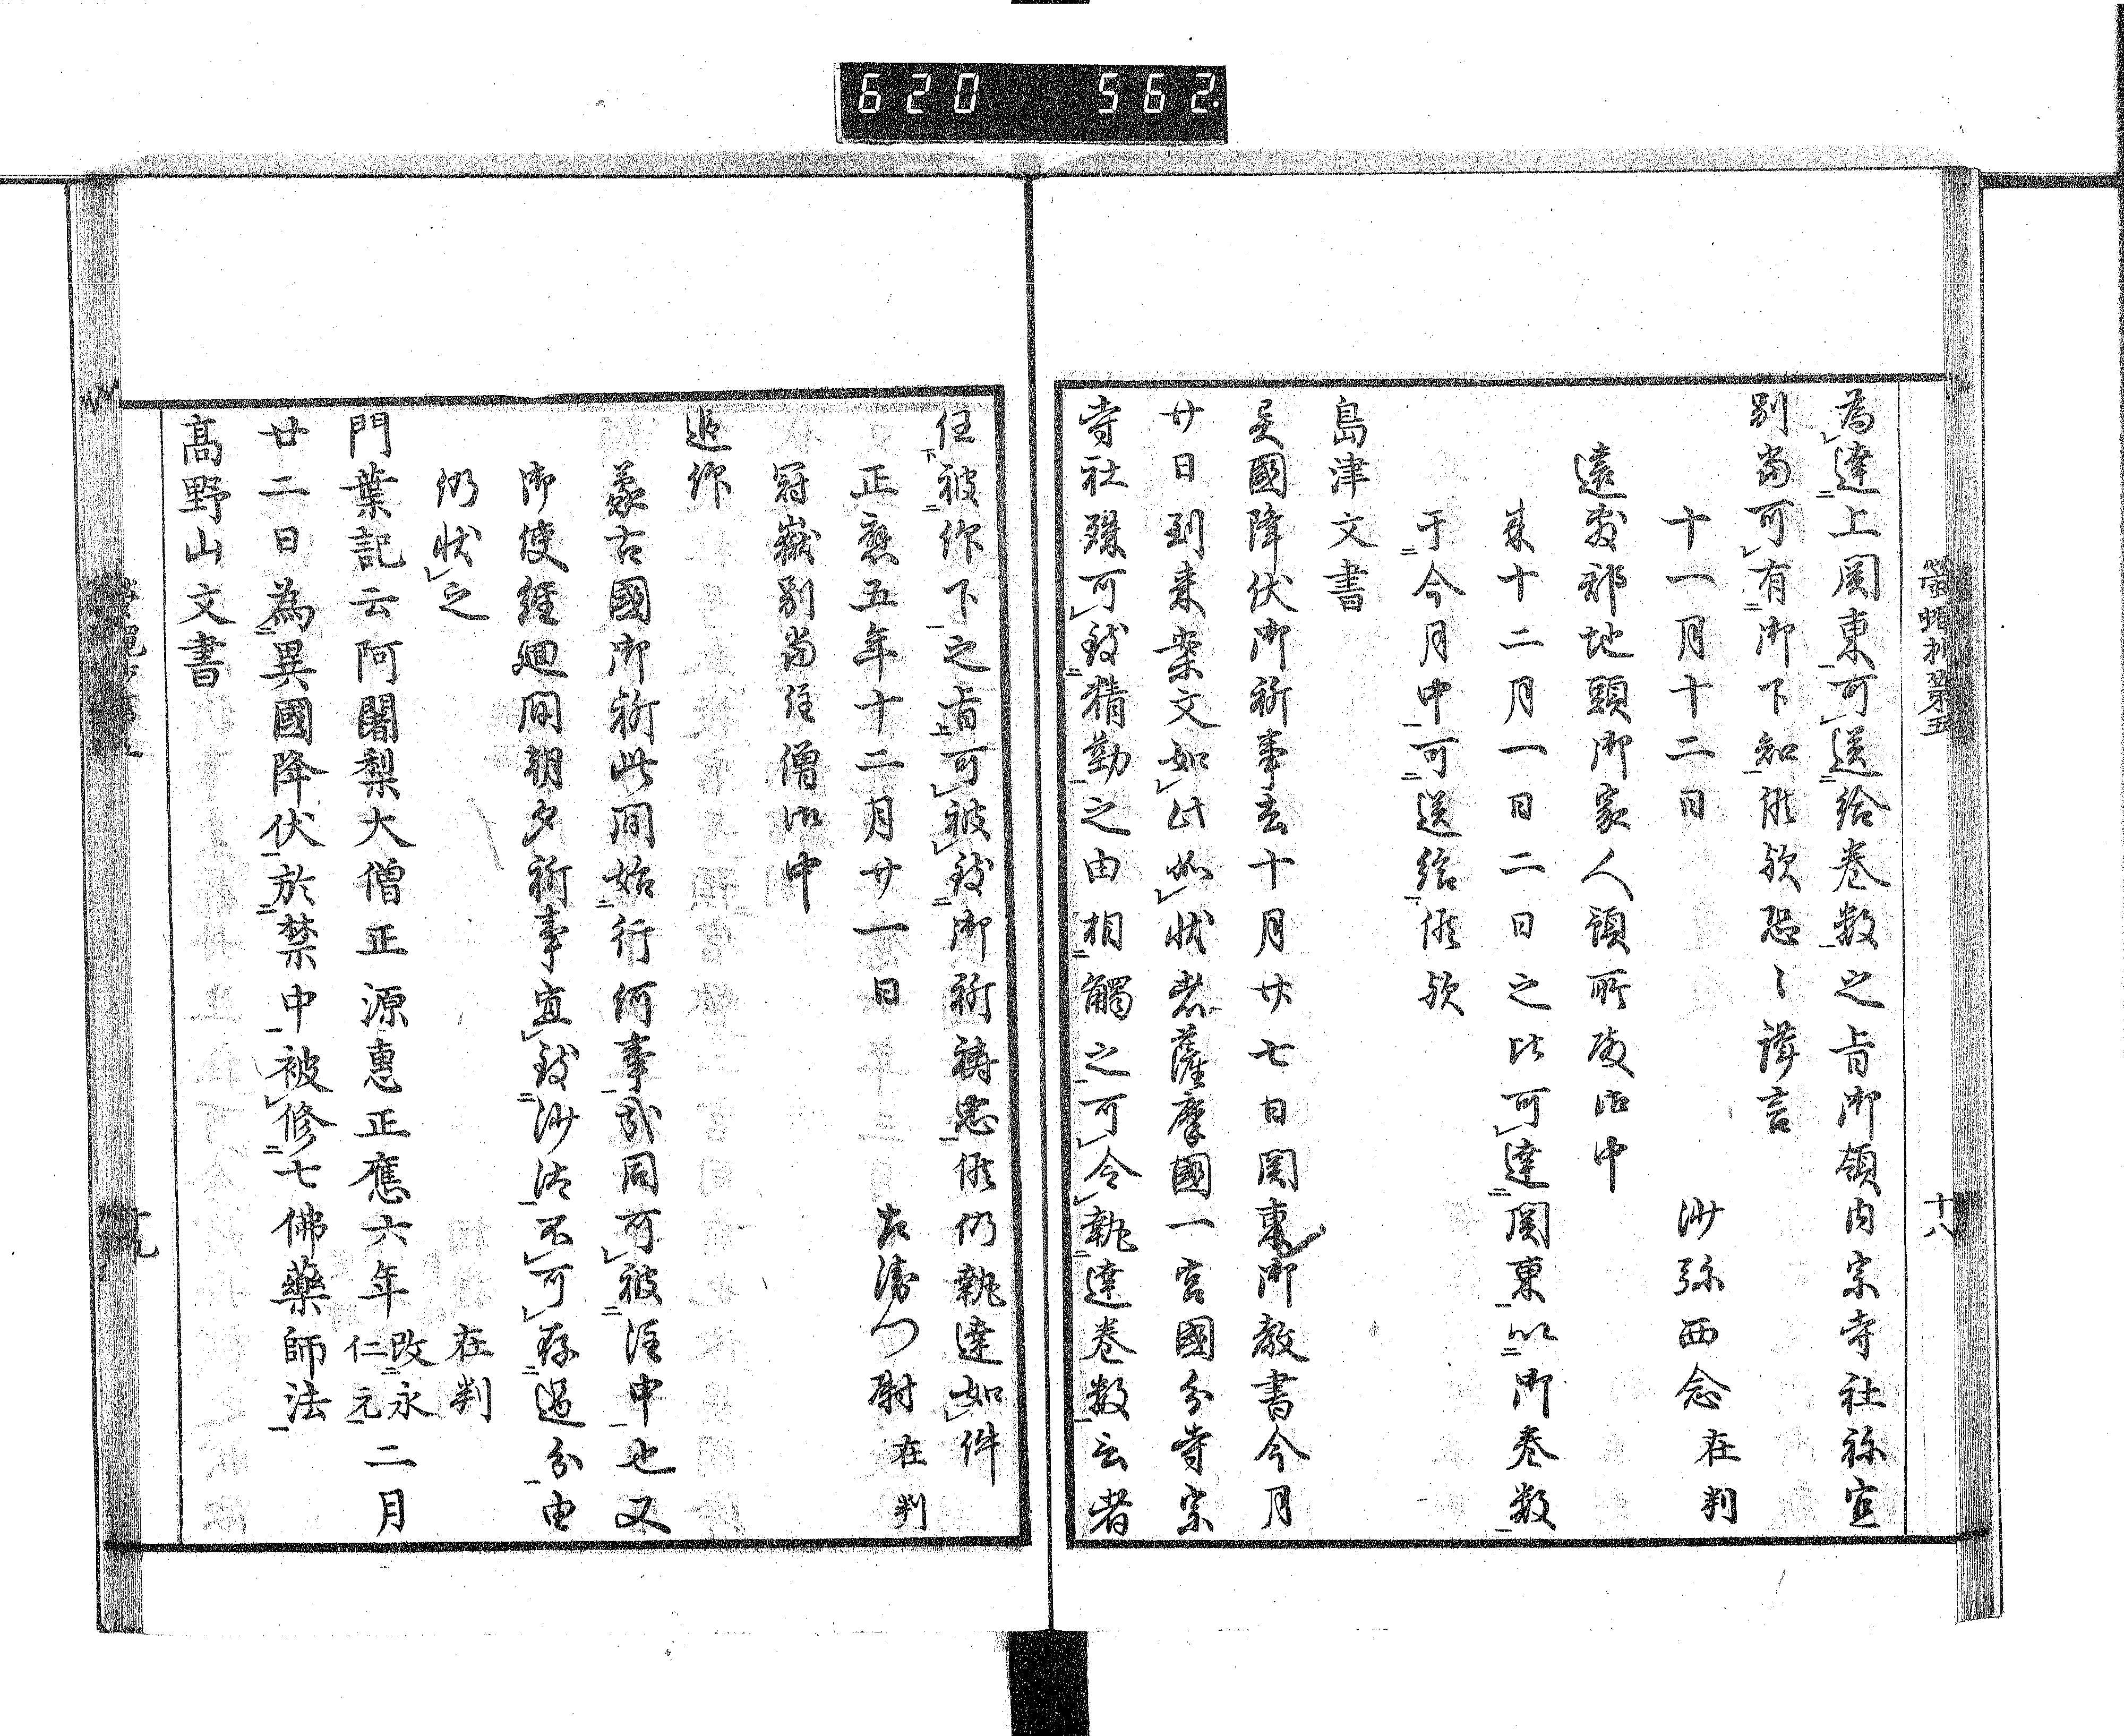 620 562
螢蠅抄 第五
十八
為達上関東可送給巻数之旨御領内宗寺社祢宜
別當可有御下知候歟恐〻謹言
十一月十二日
沙弥西念 在判
遠敷郡地頭御家人預所殿御中
来十二月一日二日之比可達関東以御巻数
于今月中可送給候歟
島津文書
異國降伏御祈事去十月廿七日関東御教書今月
廿日到来案文如此如状者薩摩國一宮國分寺宗
寺社殊可致精勤之由相觸之可令執達巻数云者
任被仰下之旨可被致御祈祷忠候仍執達如件
正應五年十二月廿一日
左衛門尉 在判
冠嶽別當住僧御中
追伸
蒙古國御祈此間始行何事哉同可被注申也又
御使經廻間朝夕祈事宜致沙汰不可存過分由
仍状之
在判
門葉記云阿闍梨大僧正源惠正應六年改永仁元二月
廿二日為異國降伏於禁中被修七佛藥師法
高野山文書
十九